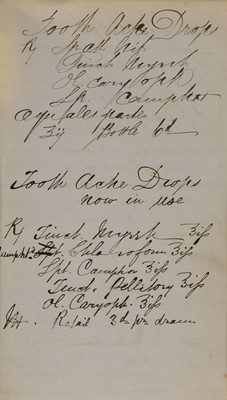 Tooth Ache Drops
Rx Spirit
Tinct Myrrh
Ol caryoph
Spt. camphor
equales partes
3ij Bottle 6d
Tooth Ache Drops
now in use
Rx Tinct Myrrh 3iſs
Spt. Chloroform 3iſs
Spt. Camphor 3iſs
Tinct. Pellitory 3iſs
Ol. Caryoph. 3iſs
Retail 3d pr dram